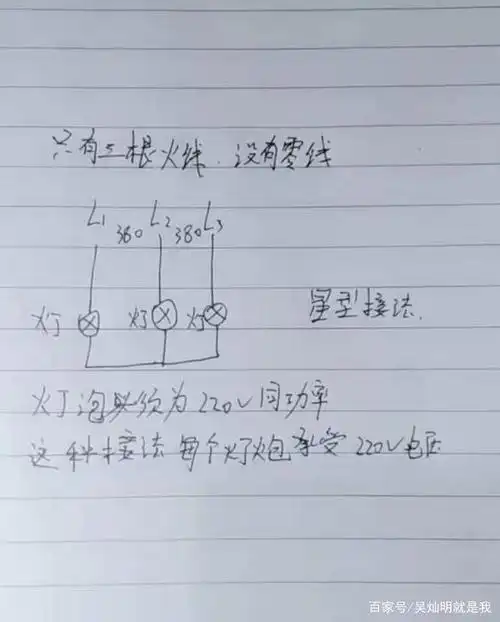 只有三根火线.没有零线
L1 380 L2 380 L3
灯 灯 灯
星型接法.
灯泡必须为220V同功率
这种接法每个灯炮承受220V电压
百家号/吴灿明就是我